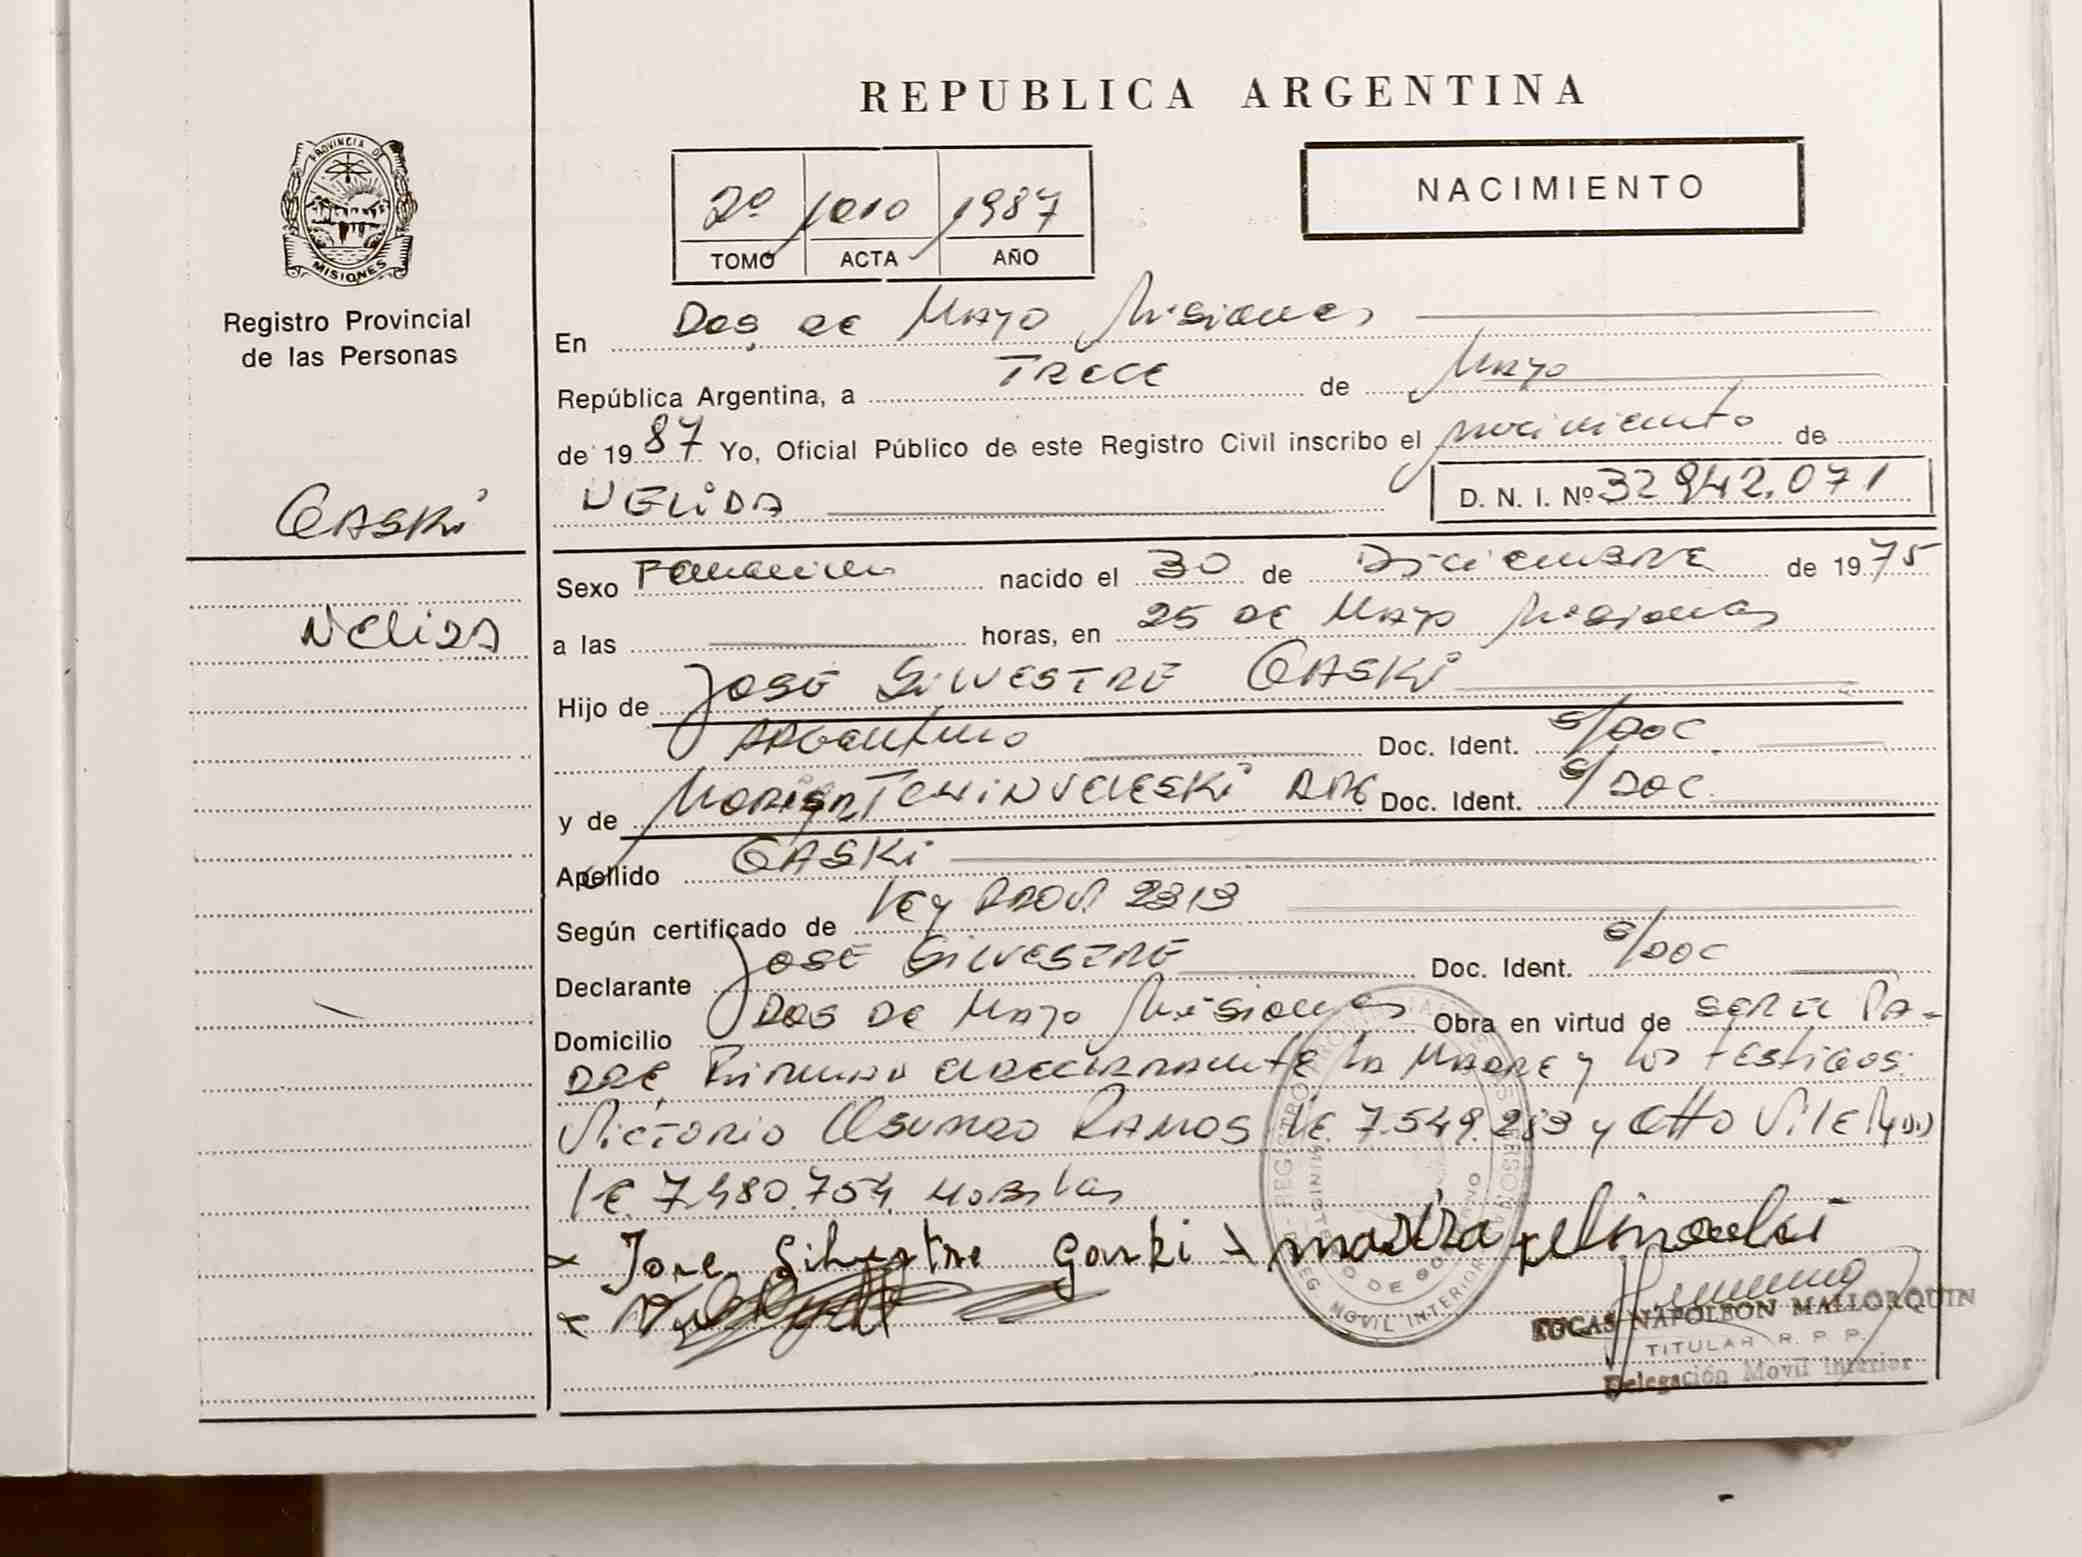 REPUBLICA ARGENTINA
PROVINCIA DE
MISIONES
Registro Provincial
de las Personas
2º 1010 1987
TOMO ACTA AÑO
NACIMIENTO
En Dos de Mayo Misiones
República Argentina, a TRECE de Mayo
de 1987 Yo, Oficial Público de este Registro Civil inscribo el nacimiento de
NELIDA D. N. I. Nº 32 942.071
GASKi
Sexo Femenino nacido el 30 de Diciembre de 1975
NELiDA
a las horas, en 25 de Mayo Misiones
Hijo de JOSE SiLVESTRE GASKi
ARGentino Doc. Ident. S/DOC
y de ARG Doc. Ident. S/DOC
Apellido GASKi
Según certificado de Ley PROV 2313
Declarante JOSE SiLVESTRE Doc. Ident. S/DOC
Domicilio DOS DE Mayo Misiones Obra en virtud de SER EL PA-
DRE Firman el declarante la MADRE y los testigos
Victorio Osvaldo RAMOS LE. 7.549.283 y Otto
LE. 7.480.754.
Jose Silvestre Gaski
LUCAS NAPOLEON MALLORQUIN
TITULAR R. P. P.
Delegación Movil Interior